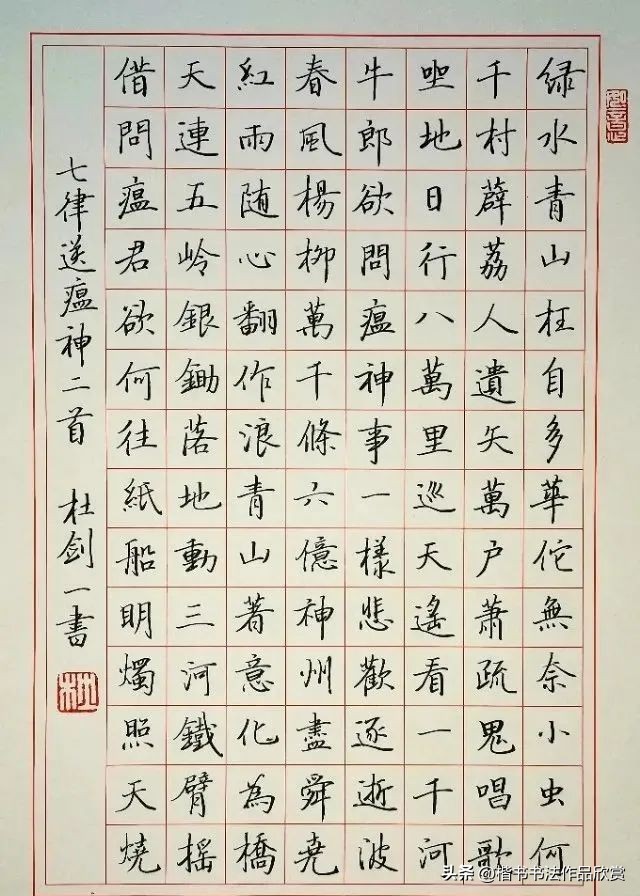 绿水青山枉自多華佗無奈小虫何
千村薜荔人遺矢萬户蕭疏鬼唱歌
坐地日行八萬里巡天遙看一千河
牛郎欲問瘟神事一樣悲歡逐逝波
春風楊柳萬千條六億神州盡舜堯
紅雨随心翻作浪青山著意化為橋
天連五岭銀鋤落地動三河鐵臂摇
借問瘟君欲何往紙船明燭照天燒
七律送瘟神二首 杜剑一書
头条 @楷书书法作品欣赏